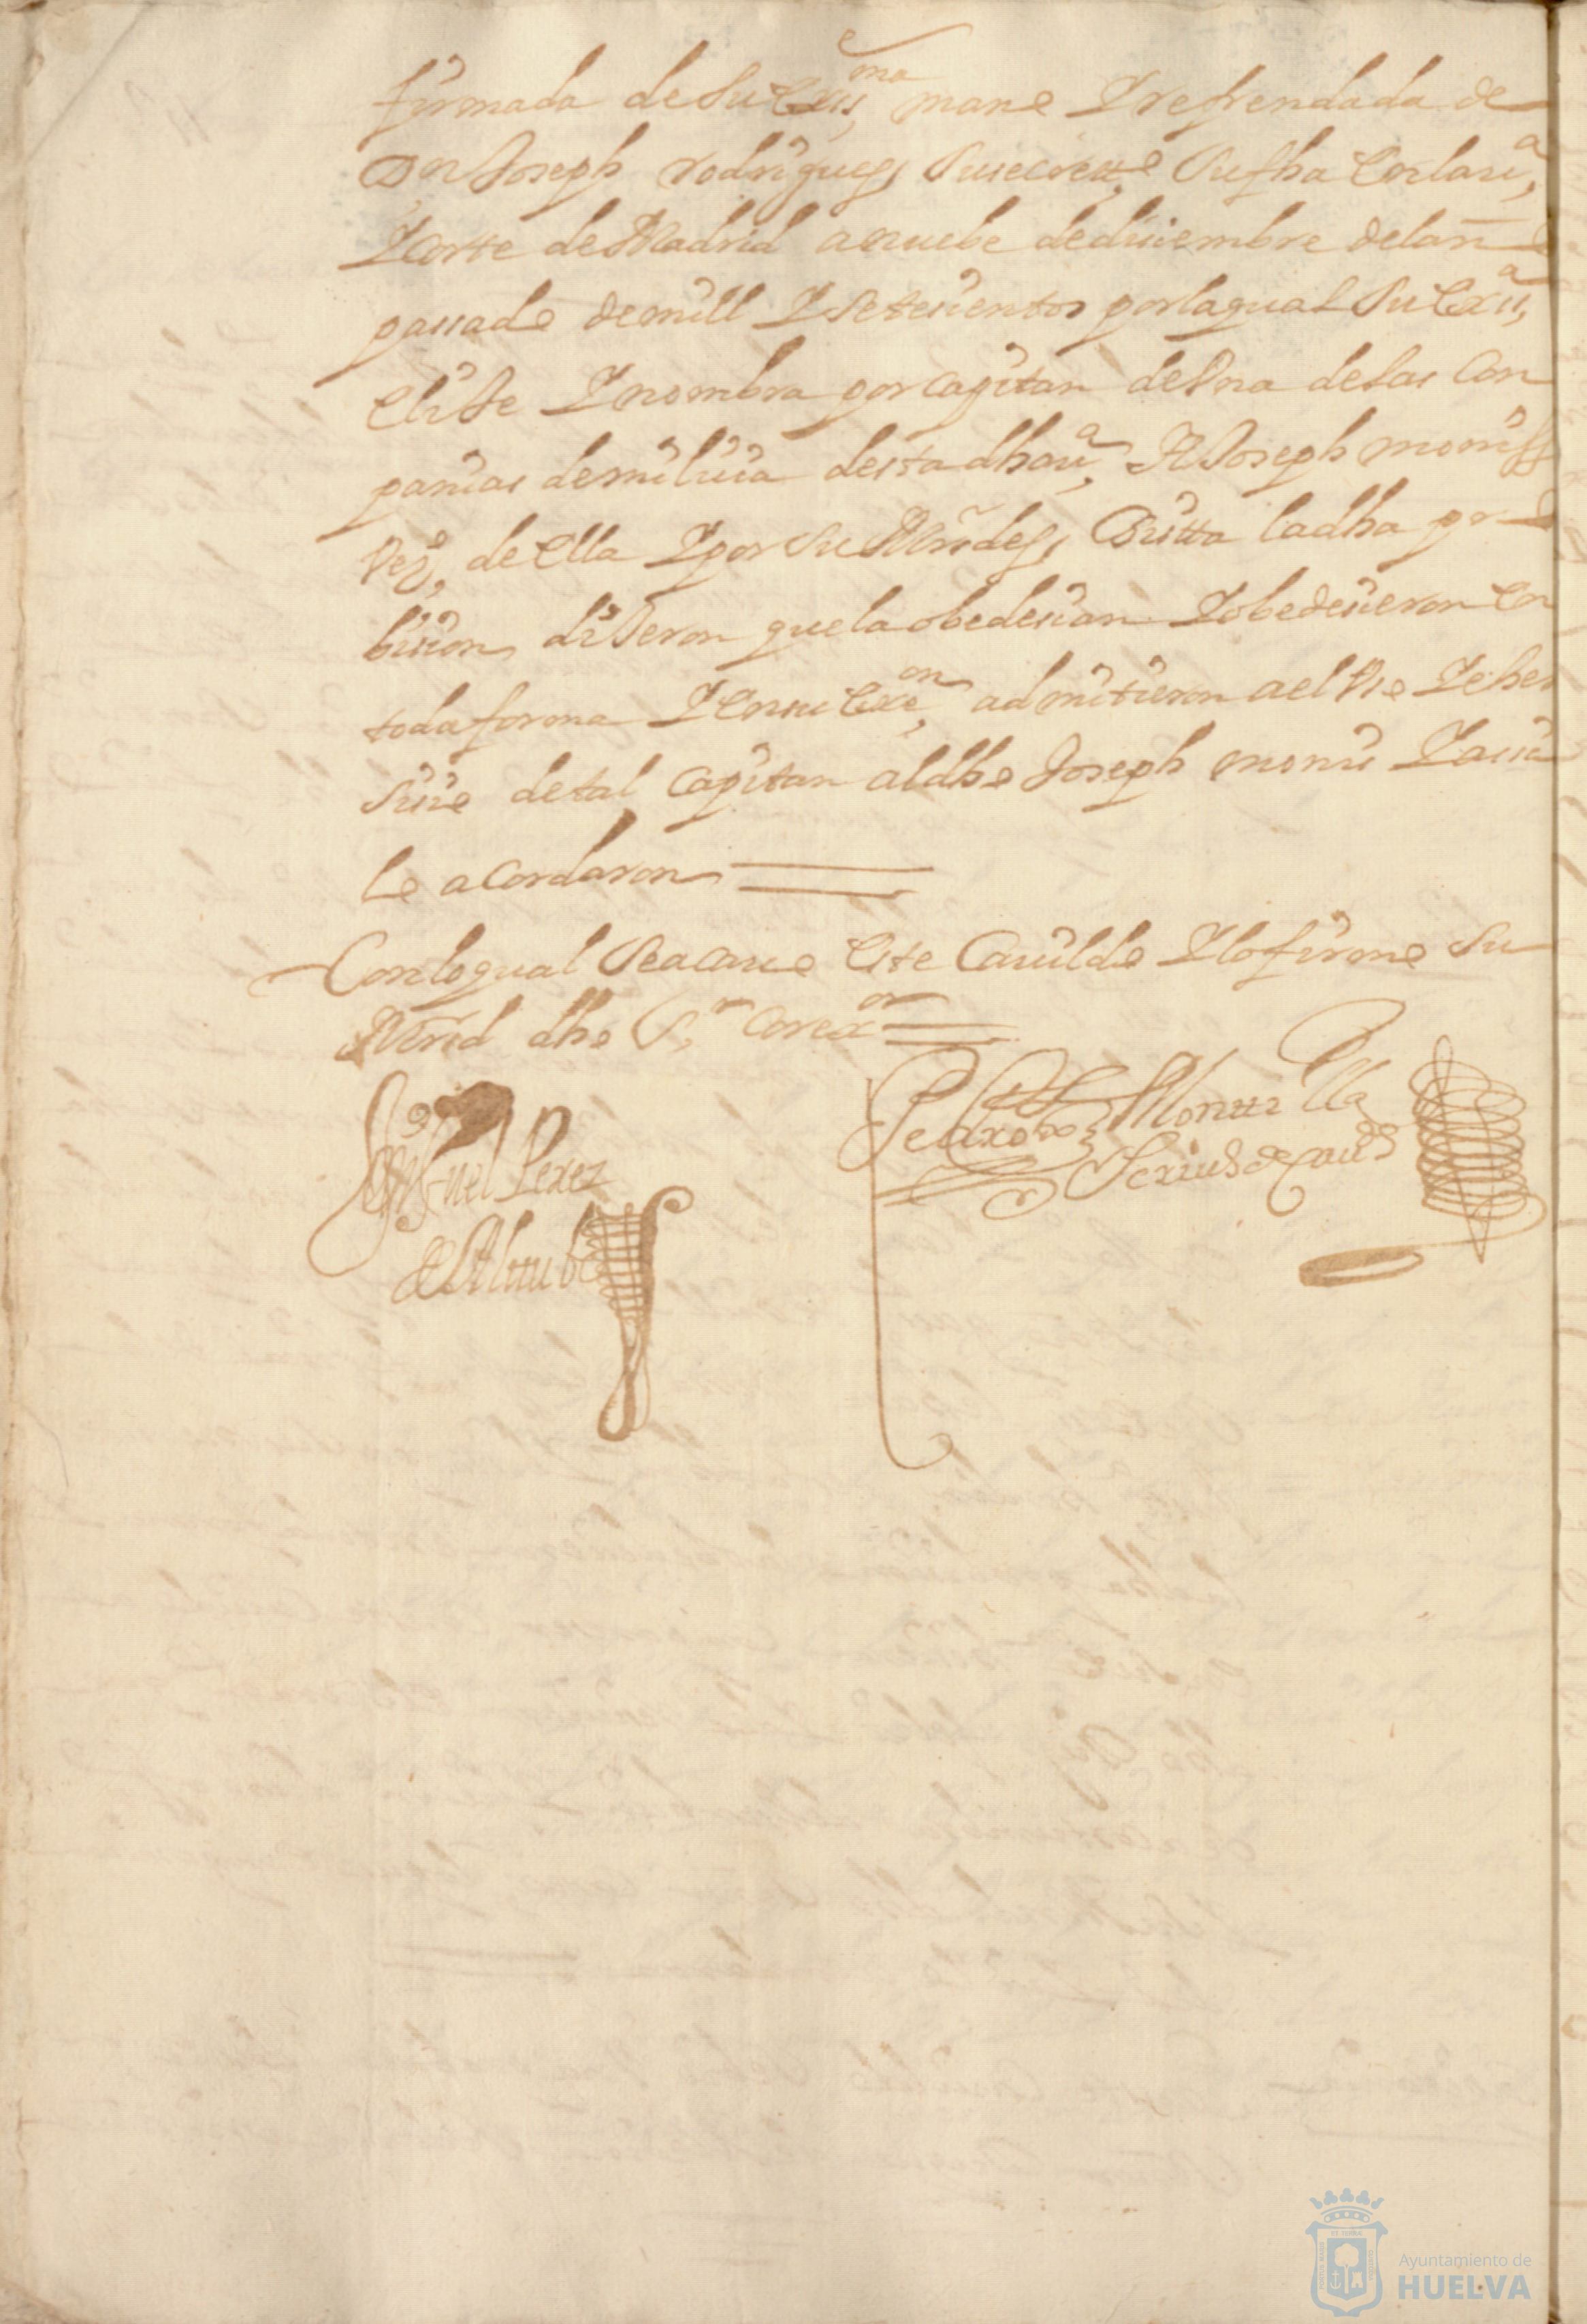 firmada de Su Excma mano Y refrendada de
Dn Joseph rodriguez Susecretto Sufha Enlaua
Y Corte de Madrid anuebe dediciembre delano
passado demill Y setecientos porlaqual Su Exca
elije Y nombra por Capitan de Una delas Con
panias demilicia desta dha va A Joseph monis
Vezo de Ella Y por Su Mrdes Vista ladha pro
bision dijeron quela obedecian Y obedecieron con
toda forma Y Ensu Exeon admitieron a el Uso Y exer
sicio detal Capitan aldho Joseph monis Y assi
lo acordaron
Conloqual Seacauo este Cauildo Y lofirmo Su
Mrcd dho Sr Corexor
Perez
de Alttube
Pedro Monttilla
Scriuo de Caudo
Ayuntamiento de
HUELVA